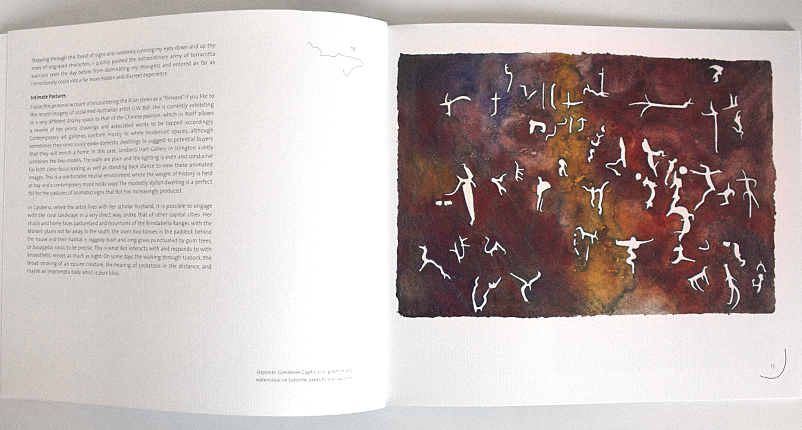 Stepping through this forest of signs and randomly running my eyes down and up the
rows of engraved characters, I quickly pushed the extraordinary army of terracotta
warriors seen the day before from dominating my thoughts and entered as far as
I emotionally could into a far more hidden and discreet experience.
Intimate Pastures
I raise this personal account of encountering the Xi'an steles as a "forward" if you like to
the recent imagery of acclaimed Australian artist G.W. Bot. She is currently exhibiting
in a very different display space to that of the Chinese pavilion, which in itself allows
a reverie of her prints, drawings and associated works to be tapped accordingly.
Contemporary art galleries conform mostly to white modernist spaces, although
sometimes they consciously evoke domestic dwellings to suggest to potential buyers
that they will enrich a home. In this case, London's Hart Gallery in Islington subtly
combines the two models. The walls are plain and the lighting is even and conducive
for both close-focus looking as well as standing back stance to view these animated
images. This is a comfortable neutral environment where the weight of history is held
at bay and a contemporary mood holds sway. The modestly stylish dwelling is a perfect
foil for the pastures of animated signs that Bot has increasingly produced.
In Canberra, where the artist lives with her scholar husband, it is possible to engage
with the rural landscape in a very direct way, unlike that of other capital cities. Her
studio and home faces pastureland and mountains of the Brindabella Ranges with the
Monaro plains not far away to the south. She owns two horses in the paddock behind
the house and their habitat is raggedy bush and long grass punctuated by gum trees,
or Eucalyptus rossii, to be precise. This is what Bot interacts with and responds to with
kinaesthetic senses as much as sight. On some days the walking through tussock, the
broad stroking of an equine creature, the hearing of cockatoos in the distance, and
maybe an impromptu body whirl is pure bliss.
Opposite: Corroboree Glyphs, graphite and
watercolour on Colombe paper,